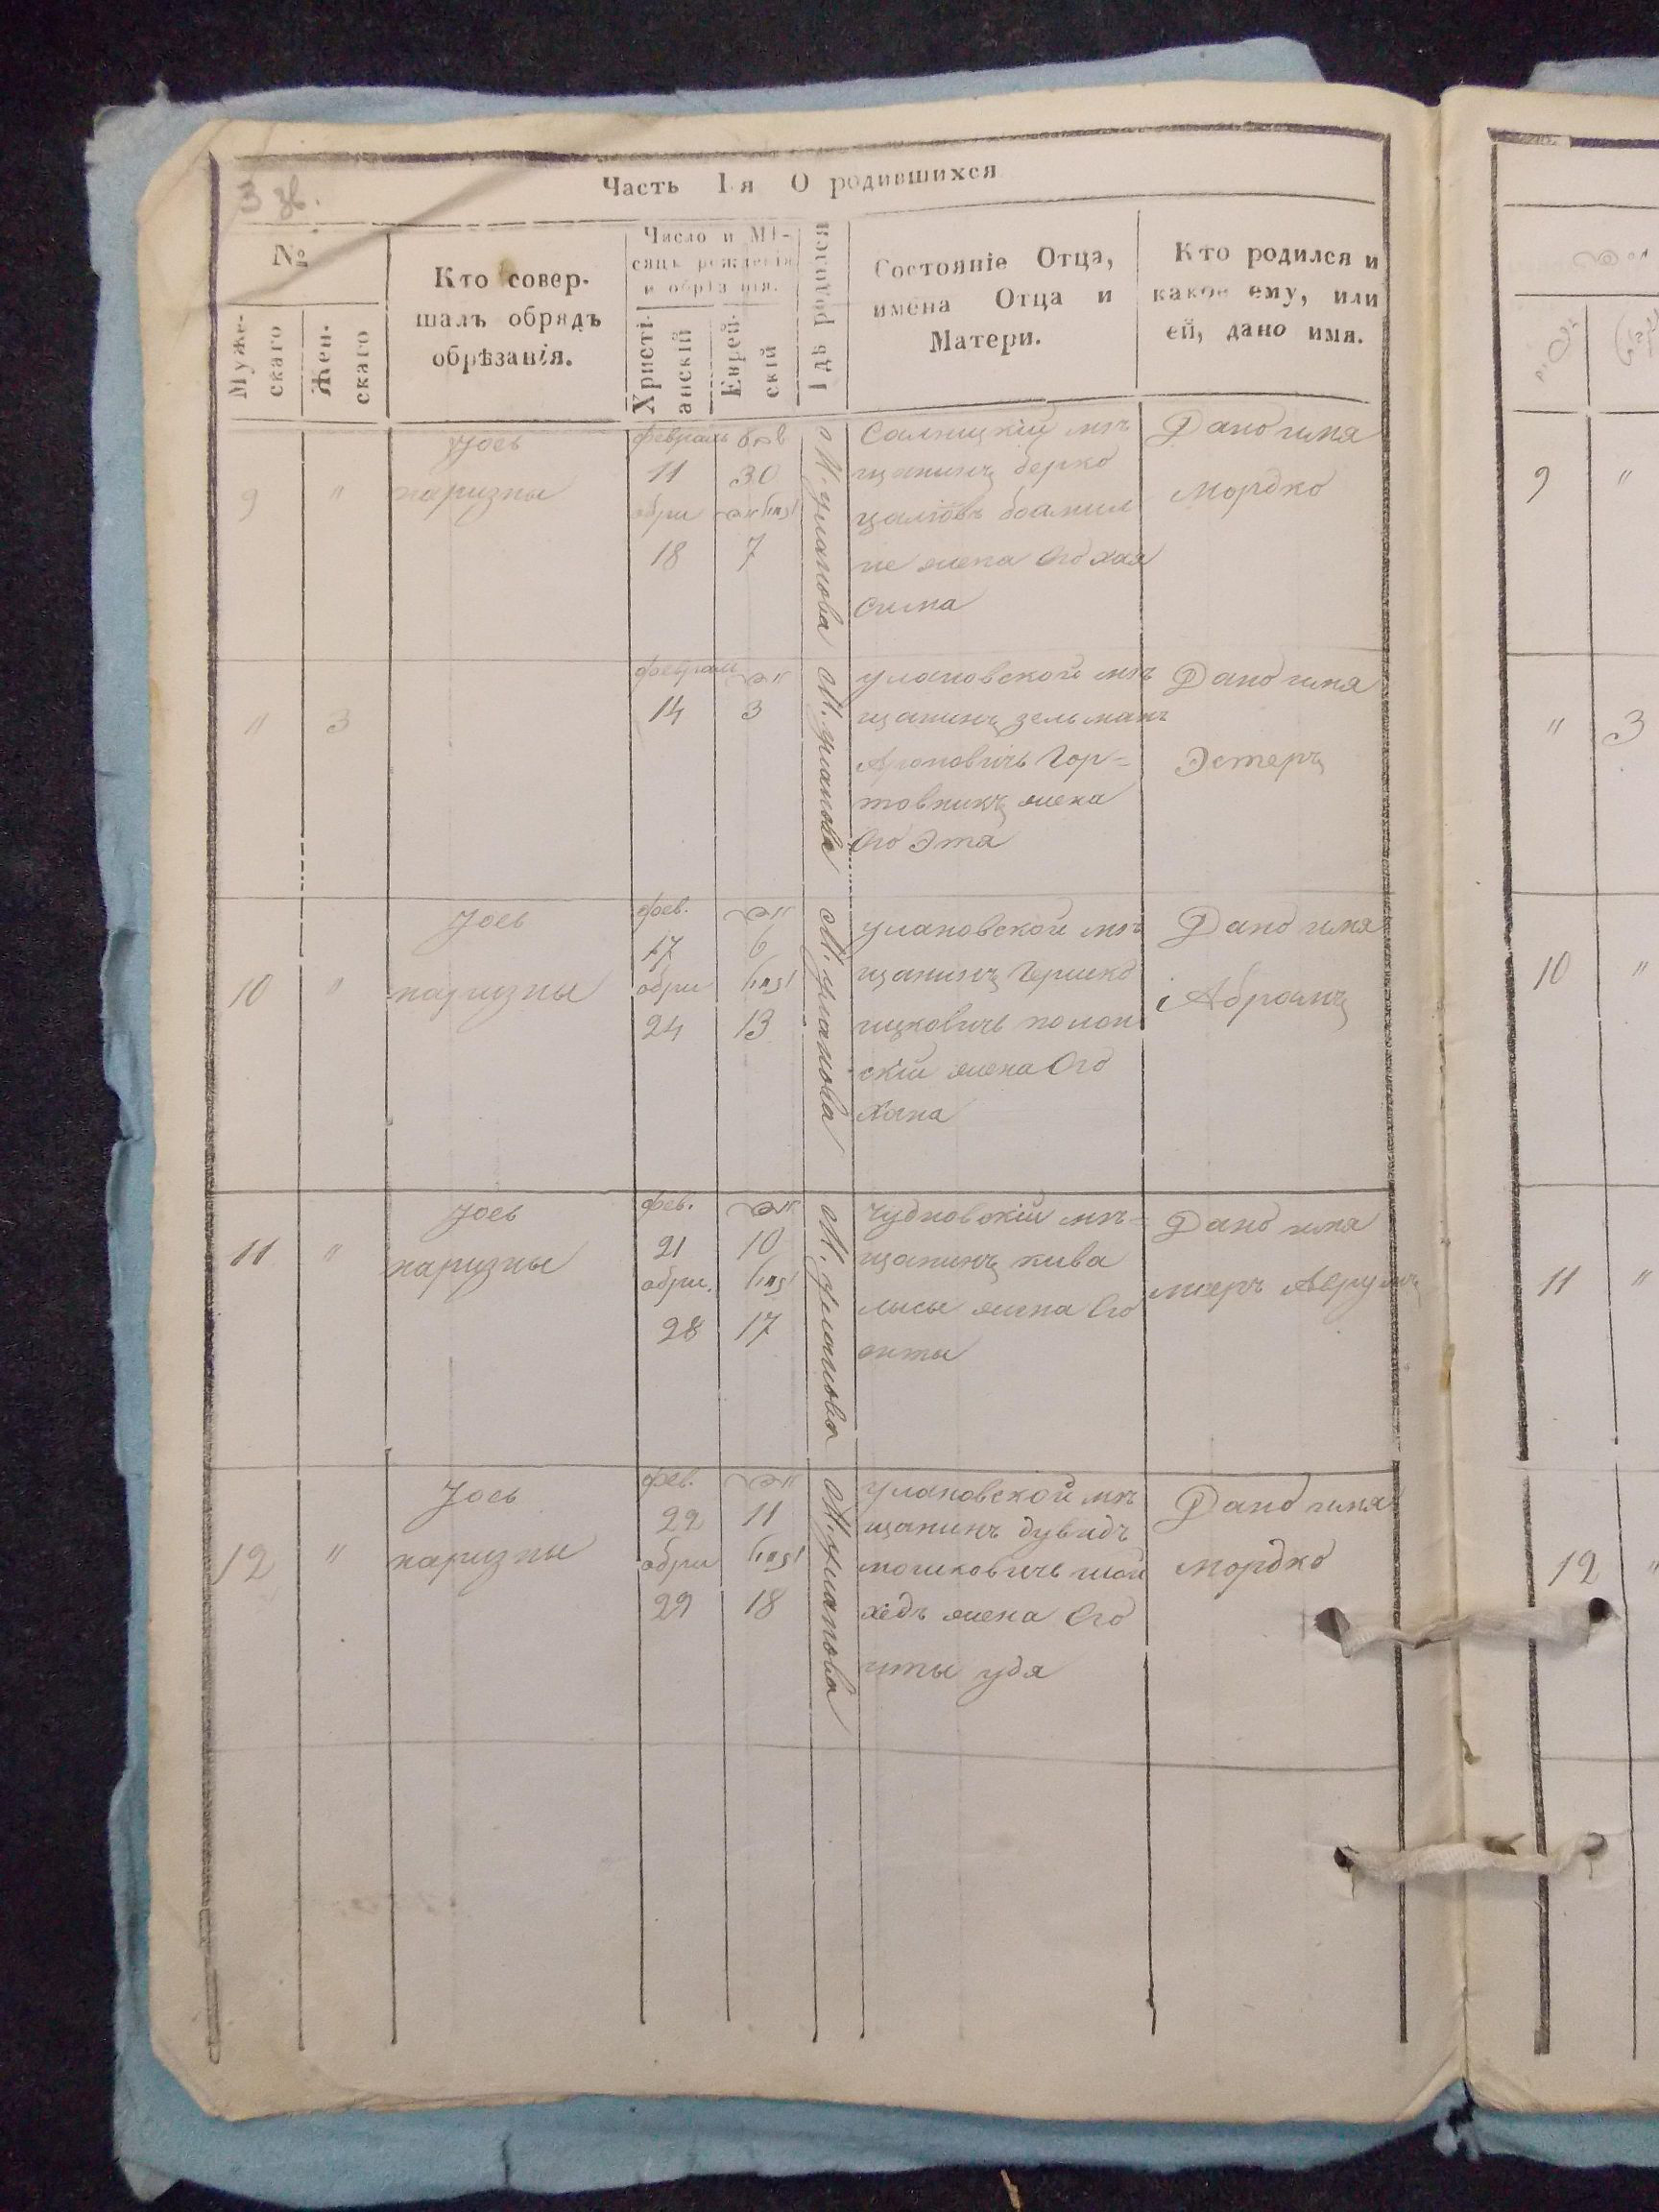 3 зв.
Часть 1-я О родившихся
№
Муже-
скаго
Жен-
скаго
Кто совер-
шалъ обрядъ
обрѣзанія.
Число и Мѣ-
сяцъ рожденія
и обрѣзанія.
Христі-
анскій
Еврей-
скій
Гдѣ родился
Состояніе Отца,
имена Отца и
Матери.
Кто родился и
какое ему, или
ей, дано имя.
9
"
Іось
наризны
февраль
11
обри
18
שבט
30
אדר
7
М. уланова
Салницкій мѣ
щанинъ берко
не жена Его хая
Сима
Дано имя
Мордко
"
3
февраль
14
אדר
3
М. уланова
улановской мѣ
щанинъ зельманъ
Ароновичь Гор=
товникъ жена
Его Этя
Дано имя
Эстеръ
10
"
Іось
наризны
фев.
17
обри
24
אדר
6
13
М. уланова
улановской мѣ
щанинъ Гершко
ицковичь полон
скій жена Его
Хана
Дано имя
Аброамъ
11
"
Іось
наризны
фев.
21
обри.
28
אדר
10
17
М. уланова
Чудновскій мѣ=
щанинъ кива
лысы жена Его
Дано имя
меерь Аврумъ
12
"
Іось
наризны
фев.
22
обри
29
אדר
11
18
М. уланова
улановской мѣ
щанинъ дувидъ
мошковичь шой
хедъ жена Его
удя
Дано имя
мордко
9 "
" 3
10 "
11 "
12 "